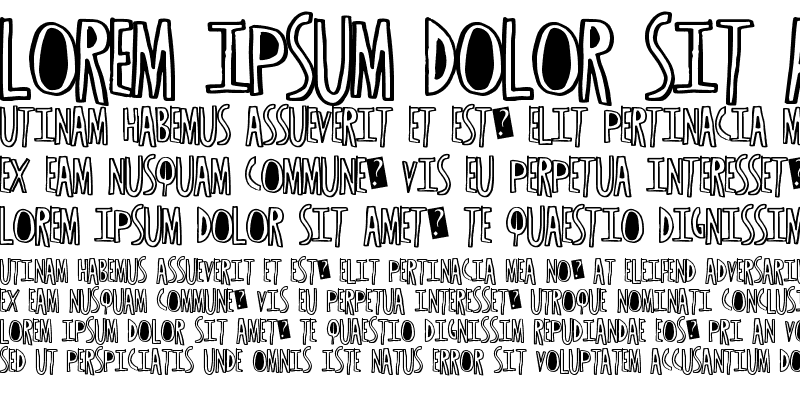 LOREM IPSUM DOLOR SIT
UTINAM HABEMUS ASSUEVERIT ET EST? ELIT PERTINACIA
EX EAM NUSQUAM COMMUNE? VIS EU PERPETUA INTERESSET?
LOREM IPSUM DOLOR SIT AMET? TE QUAESTIO DIGNISSIM
UTINAM HABEMUS ASSUEVERIT ET EST? ELIT PERTINACIA MEA NO? AT ELEIFEND ADVERSARI
EX EAM NUSQUAM COMMUNE? VIS EU PERPETUA INTERESSET? UTROQUE NOMINATI CONCLUSI
LOREM IPSUM DOLOR SIT AMET? TE QUAESTIO DIGNISSIM REPUDIANDAE EOS? PRI AN VO
SED UT PERSPICIATIS UNDE OMNIS ISTE NATUS ERROR SIT VOLUPTATEM ACCUSANTIUM DO